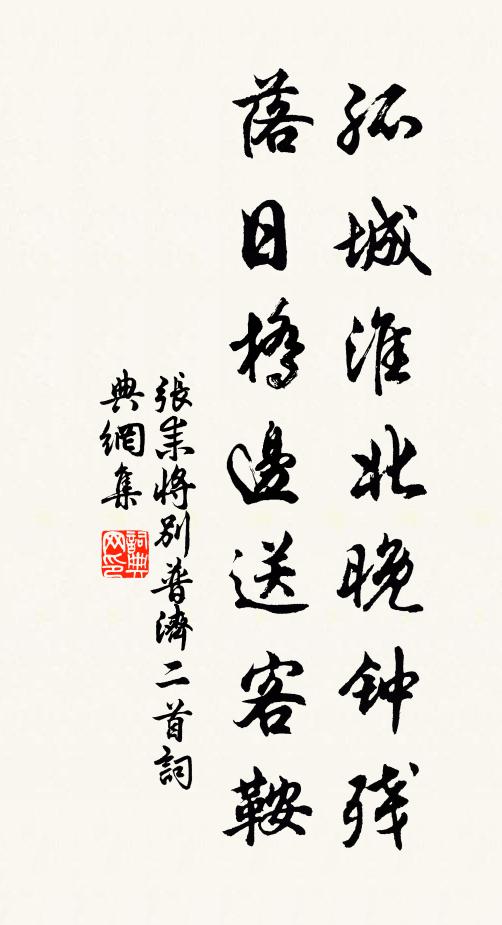 孤城淮北晚钟残
落日橋邊送客鞍
張耒將别普濟二首詞
典網集
詞典
网印